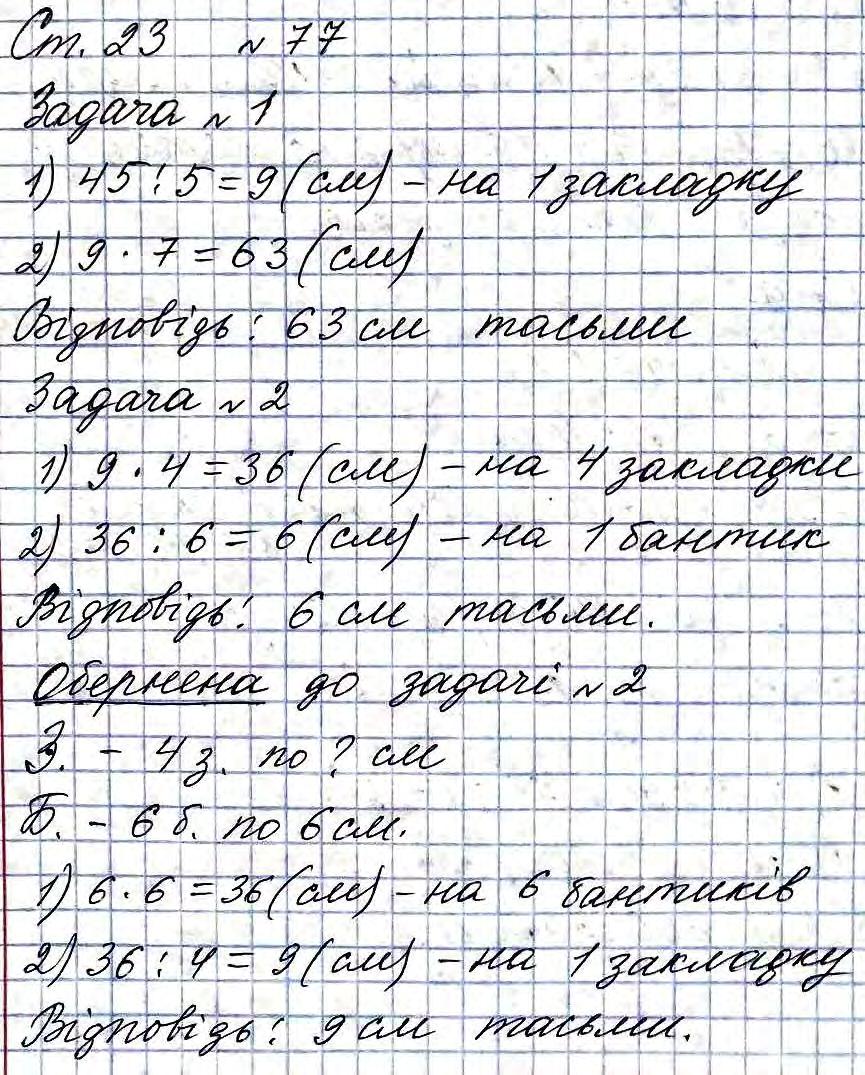 Ст. 23 № 77
Задача № 1
1) 45 : 5 = 9 (см) – на 1 закладку
2) 9 · 7 = 63 (см)
Відповідь: 63 см тасьми
Задача № 2
1) 9 · 4 = 36 (см) – на 4 закладки
2) 36 : 6 = 6 (см) – на 1 бантик
Відповідь: 6 см тасьми.
Обернена до задачі № 2
З. – 4 з. по ? см
Б. – 6 б. по 6 см.
1) 6 · 6 = 36 (см) – на 6 бантиків
2) 36 : 4 = 9 (см) – на 1 закладку
Відповідь: 9 см тасьми.